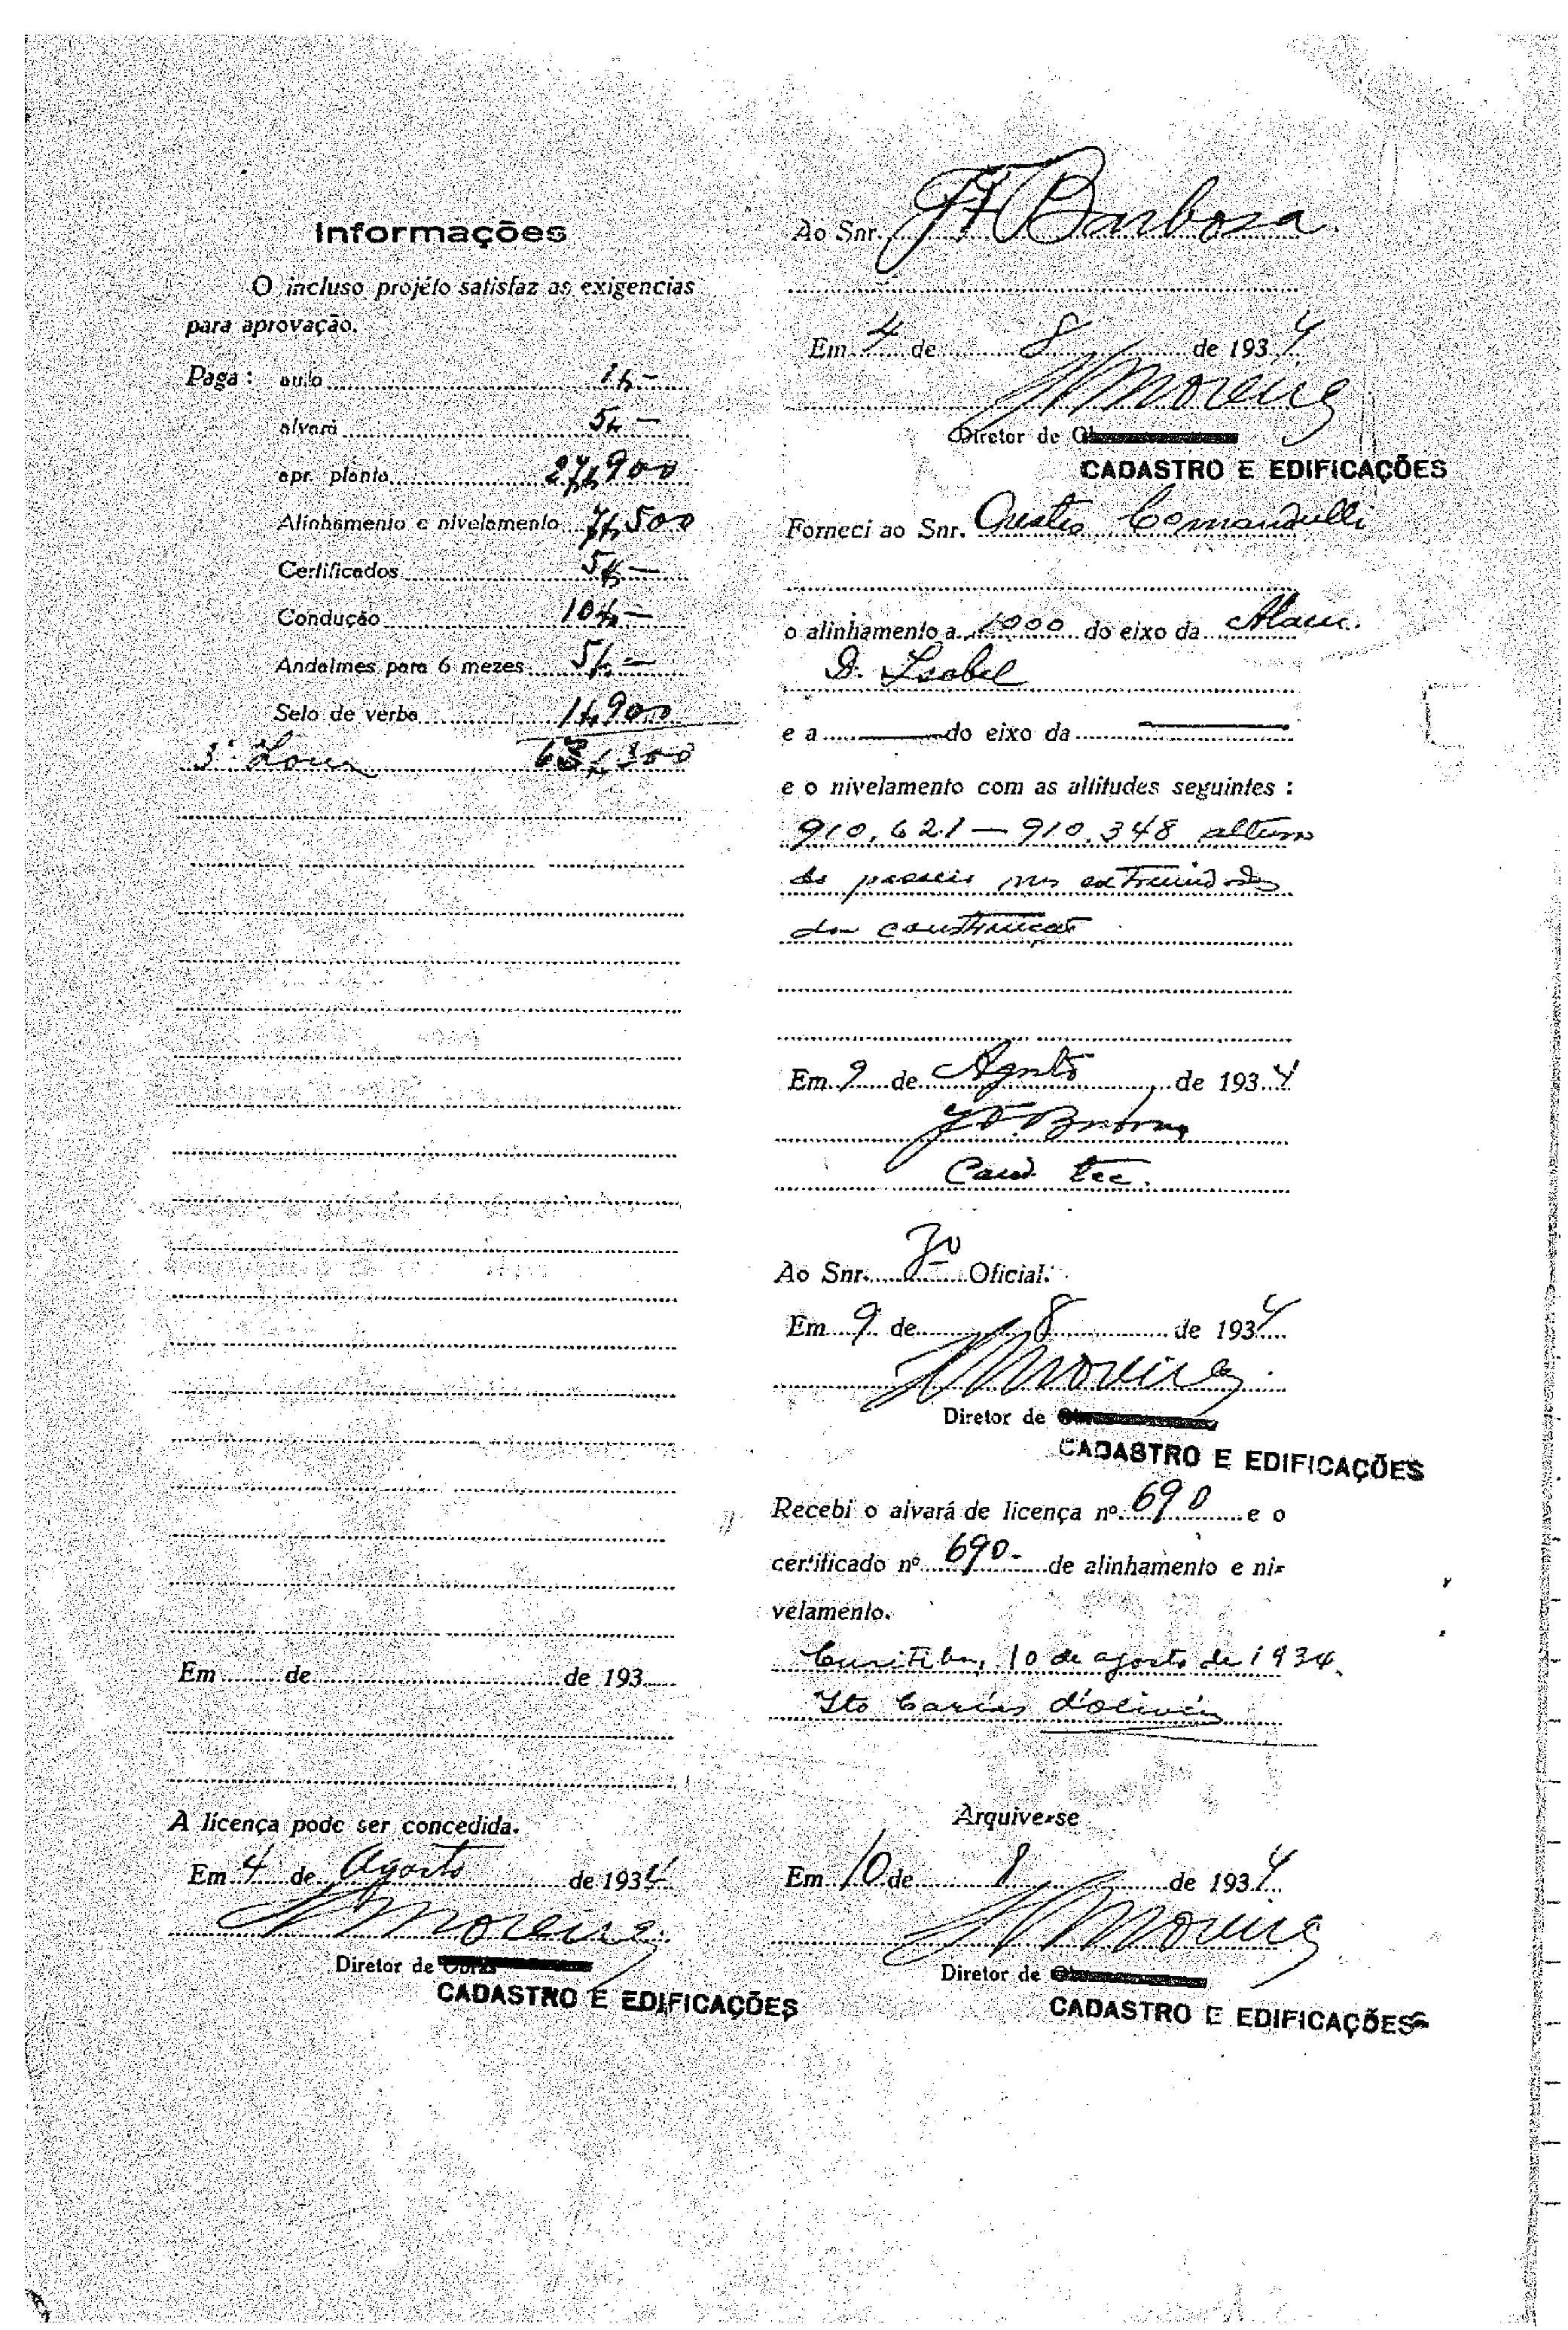 Informações
O incluso projéto satisfaz as exigencias
para aprovação.
Paga: auto 1$-
alvará 5$-
apr. planta 27$900
Alinhamento e nivelamento 7$500
Certificados 5$-
Condução 10$-
Andaimes para 6 mezes 5$-
Selo de verba 1$900
63$300
Em de de 193
A licença pode ser concedida.
Em 4 de Agosto de 1934
Moreira
Diretor de Obras
CADASTRO E EDIFICAÇÕES
Ao Snr. J F Barbosa
Em 4 de 8 de 1934
Moreira
Diretor de
CADASTRO E EDIFICAÇÕES
Forneci ao Snr. Orestes Comandulli
o alinhamento a 1000 do eixo da Alam.
D. Isabel
e a — do eixo da —
e o nivelamento com as altitudes seguintes :
910,621 — 910,348 altura
do passeio nas extremidades
da construcção
Em 9 de Agosto de 1934
J F. Barbosa
Cond. tec.
Ao Snr. 3º Oficial.
Em 9 de 8 de 1934
Moreira
Diretor de
CADASTRO E EDIFICAÇÕES
Recebi o alvará de licença nº 690 e o
certificado nº 690- de alinhamento e ni-
velamento.
Curitiba, 10 de agosto de 1934.
d'Oliveira
Arquive-se
Em 10 de 8 de 1934
Moreira
Diretor de
CADASTRO E EDIFICAÇÕES